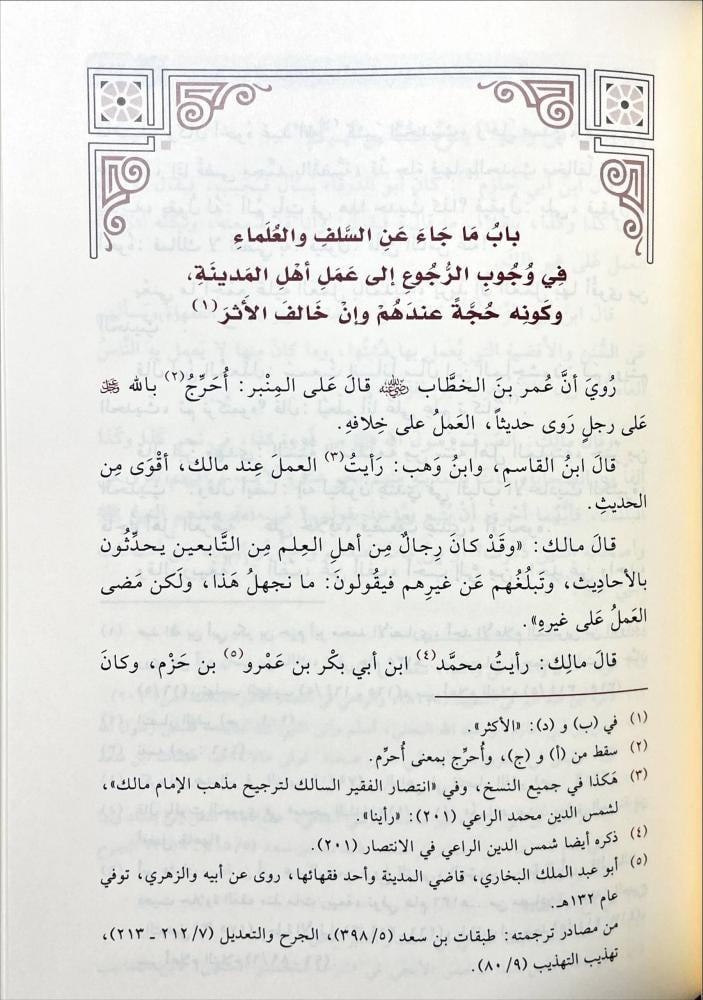 بابُ مَا جَاءَ عَنِ السَّلفِ والعُلَماءِ
فِي وُجُوبِ الرُّجُوعِ إلى عَمَلِ أهْلِ المَدينَة،
وكَونِه حُجَّةً عندَهُمْ وإنْ خَالفَ الأَثرَ (١)
رُويَ أنَّ عُمر بنَ الخطَّاب رضي الله عنه قالَ عَلى المِنْبر: أُحَرِّجُ(٢) بالله عز وجل
عَلى رجلٍ رَوى حديثاً، العَملُ على خِلافهِ.
قالَ ابنُ القاسمِ، وابنُ وَهب: رَأيتُ(٣) العملَ عِند مالك، أقْوَى مِن
الحديثِ.
قالَ مالك: «وقَدْ كانَ رِجالٌ مِن أهلِ العِلم مِن التَّابعين يحدِّثُون
بالأحاديث، وتَبلُغُهم عَن غيرِهم فيقُولونَ: ما نجهلُ هَذا، ولَكن مَضى
العَملُ عَلى غيرهِ».
قالَ مالِك: رأيتُ محمَّد(٤) ابن أبي بكْر بن عَمْرو(٥) بن حَزْم، وكانَ
(١) في (ب) و (د): «الأكثر».
(٢) سقط من (أ) و (ج)، وأُحرِّج بمعنى أُحرِّم.
(٣) هَكذا في جميع النسخ، وفي «انتصار الفقير السالك لترجيح مذهب الإمام مالك»،
لشمس الدين محمد الراعي (٢٠١): «رأينا».
(٤) ذكره أيضا شمس الدين الراعي في الانتصار (٢٠١).
(٥) أبو عبد الملك البخاري، قاضي المدينة وأحد فقهائها، روى عن أبيه والزهري، توفي
عام ١٣٢هـ.
من مصادر ترجمته: طبقات بن سعد (٣٩٨/٥)، الجرح والتعديل (٢١٢/٧ ـ ٢١٣)،
تهذيب التهذيب (٨٠/٩).